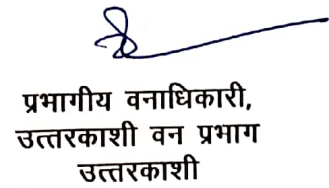 प्रभागीय वनाधिकारी,
उत्तरकाशी वन प्रभाग
उत्तरकाशी